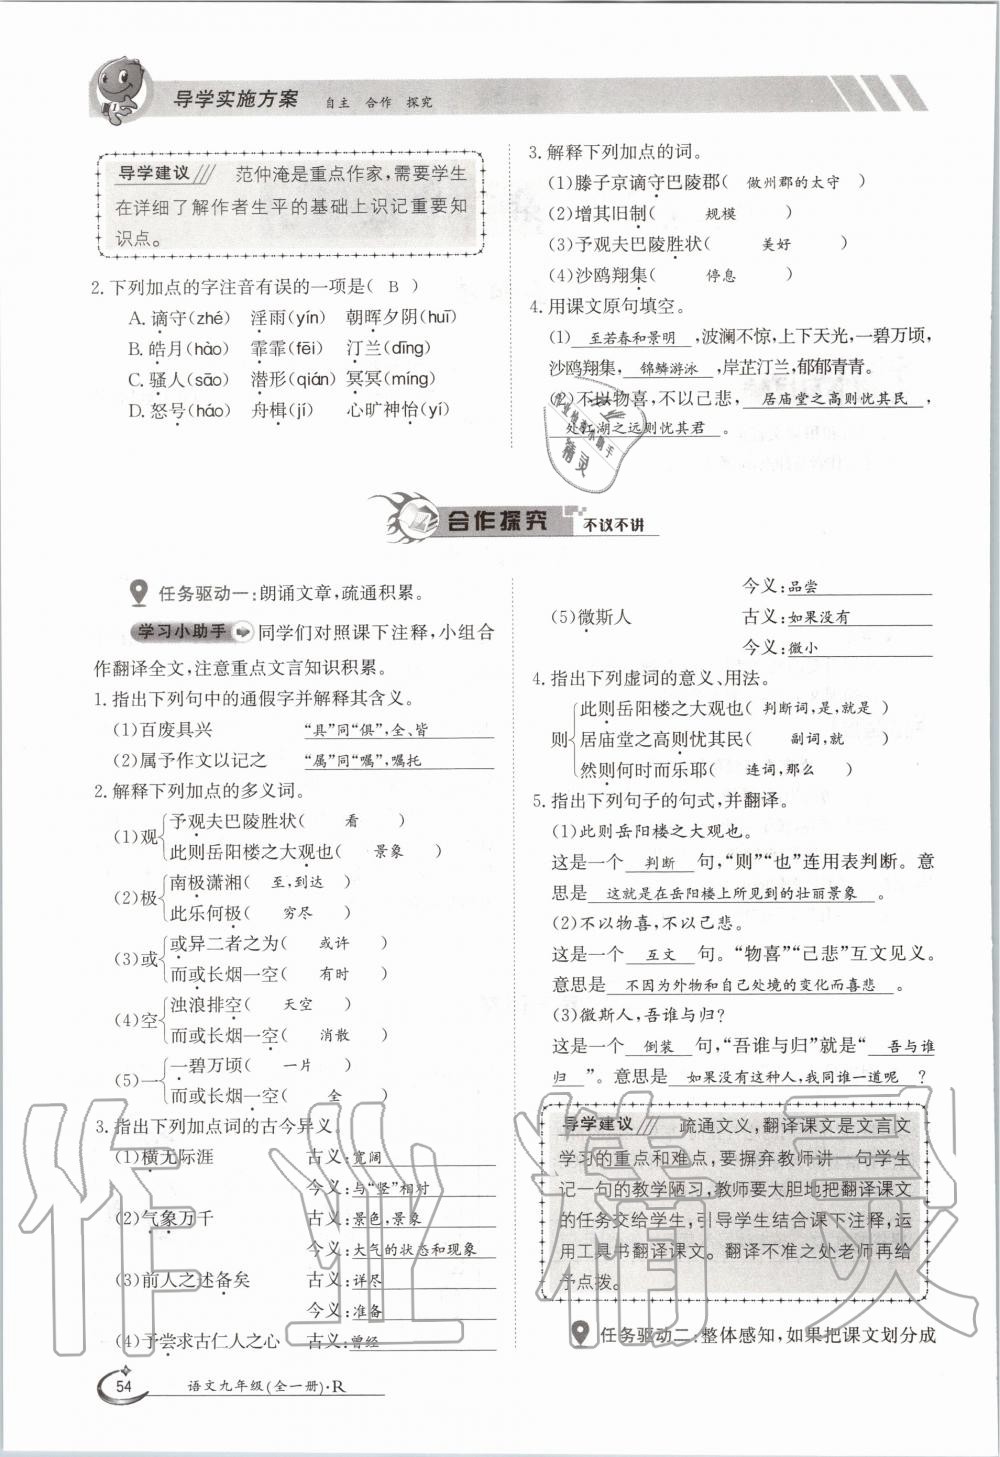 导学实施方案 自主 合作 探究
导学建议 范仲淹是重点作家,需要学生
在详细了解作者生平的基础上识记重要知
识点。
2.下列加点的字注音有误的一项是( B )
A.谪守(zhé) 淫雨(yín) 朝晖夕阴(huī)
B.皓月(hào) 霏霏(fēi) 汀兰(dīng)
C.骚人(sāo) 潜形(qián) 冥冥(míng)
D.怒号(háo) 舟楫(jí) 心旷神怡(yí)
3.解释下列加点的词。
(1)滕子京谪守巴陵郡( 做州郡的太守 )
(2)增其旧制( 规模 )
(3)予观夫巴陵胜状( 美好 )
(4)沙鸥翔集( 停息 )
4.用课文原句填空。
(1) 至若春和景明 ,波澜不惊,上下天光,一碧万顷,
沙鸥翔集, 锦鳞游泳 ,岸芷汀兰,郁郁青青。
(2)不以物喜,不以己悲, 居庙堂之高则忧其民 ,
处江湖之远则忧其君 。
合作探究 不议不讲
任务驱动一:朗诵文章,疏通积累。
学习小助手 同学们对照课下注释,小组合
作翻译全文,注意重点文言知识积累。
1.指出下列句中的通假字并解释其含义。
(1)百废具兴 “具”同“俱”,全、皆
(2)属予作文以记之 “属”同“嘱”,嘱托
2.解释下列加点的多义词。
(1)观
予观夫巴陵胜状( 看 )
此则岳阳楼之大观也( 景象 )
(2)极
南极潇湘( 至,到达 )
此乐何极( 穷尽 )
(3)或
或异二者之为( 或许 )
而或长烟一空( 有时 )
(4)空
浊浪排空( 天空 )
而或长烟一空( 消散 )
(5)一
一碧万顷( 一片 )
而或长烟一空( 全 )
3.指出下列加点词的古今异义。
(1)横无际涯 古义:宽阔
今义:与“竖”相对
(2)气象万千 古义:景色,景象
今义:大气的状态和现象
(3)前人之述备矣 古义:详尽
今义:准备
(4)予尝求古仁人之心 古义:曾经
今义:品尝
(5)微斯人 古义:如果没有
今义:微小
4.指出下列虚词的意义、用法。
则
此则岳阳楼之大观也( 判断词,是,就是 )
居庙堂之高则忧其民( 副词,就 )
然则何时而乐耶( 连词,那么 )
5.指出下列句子的句式,并翻译。
(1)此则岳阳楼之大观也。
这是一个 判断 句,“则”“也”连用表判断。意
思是 这就是在岳阳楼上所见到的壮丽景象 。
(2)不以物喜,不以己悲。
这是一个 互文 句。“物喜”“己悲”互文见义。
意思是 不因为外物和自己处境的变化而喜悲 。
(3)微斯人,吾谁与归?
这是一个 倒装 句,“吾谁与归”就是“ 吾与谁
归 ”。意思是 如果没有这种人,我同谁一道呢 ?
导学建议 疏通文义,翻译课文是文言文
学习的重点和难点,要摒弃教师讲一句学生
记一句的教学陋习,教师要大胆地把翻译课文
的任务交给学生,引导学生结合课下注释,运
用工具书翻译课文。翻译不准之处老师再给
予点拨。
任务驱动二:整体感知,如果把课文划分成
54 语文九年级(全一册)·R
作业精灵